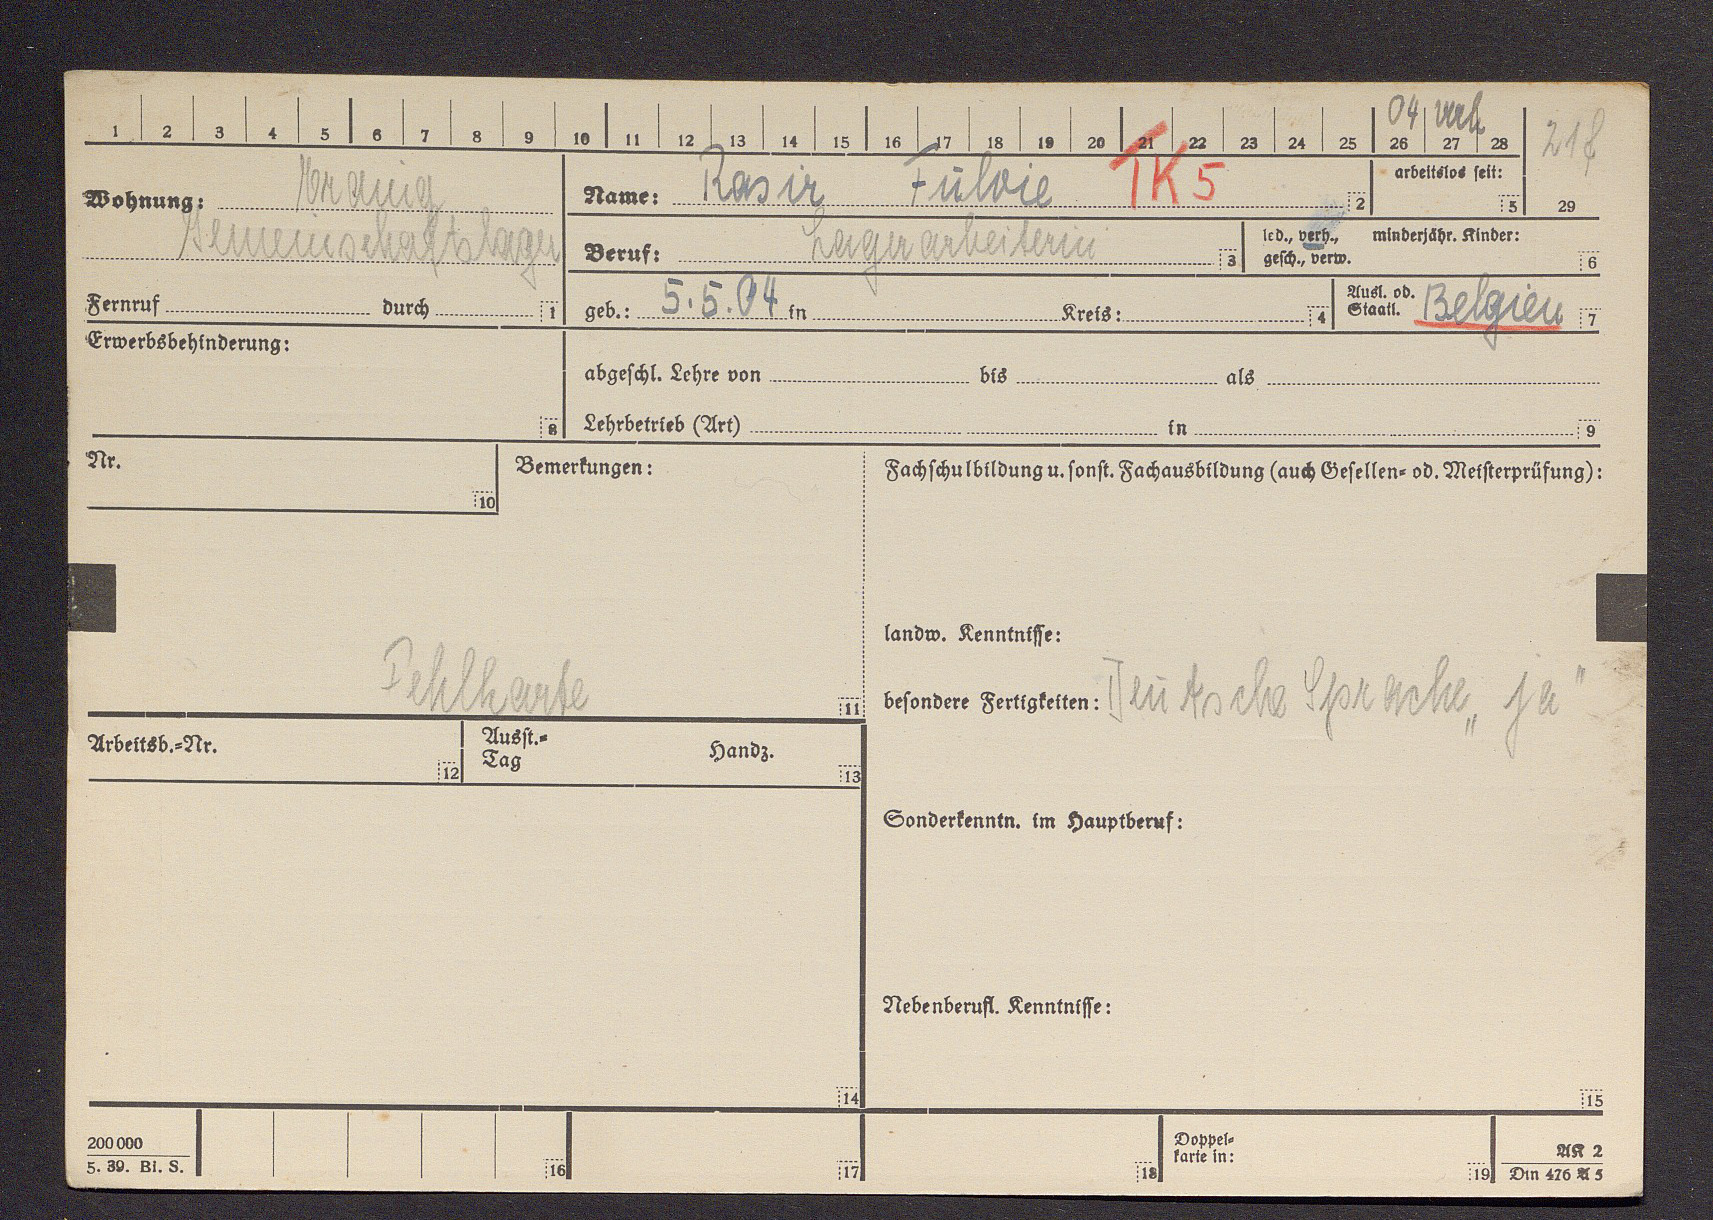 04 verh
1 2 3 4 5 6 7 8 9 10 11 12 13 14 15 16 17 18 19 20 21 22 23 24 25 26 27 28
Wohnung:
Gemeinschaftslager
Fernruf durch 1
Name: Rasir Fulvie TK5 2
arbeitslos seit: 5
29
Beruf: Lagerarbeiterin 3
led., verh., gesch., verw.
minderjähr. Kinder: 6
geb.: 5.5.04 in Kreis: 4
Ausl. od. Staatl. Belgien 7
Erwerbsbehinderung: 8
abgeschl. Lehre von bis als
Lehrbetrieb (Art) in 9
Nr. 10
Bemerkungen:
Fehlkarte 11
Fachschulbildung u. sonst. Fachausbildung (auch Gesellen- od. Meisterprüfung):
landw. Kenntnisse:
besondere Fertigkeiten: Deutsche Sprache „ja"
Arbeitsb.-Nr. 12
Ausst.-Tag Handz. 13
Sonderkenntn. im Hauptberuf:
Nebenberufl. Kenntnisse:
14
15
200 000
5. 39. Bl. S.
16
17
18
Doppel-
karte in: 19
AK 2
Din 476 A 5